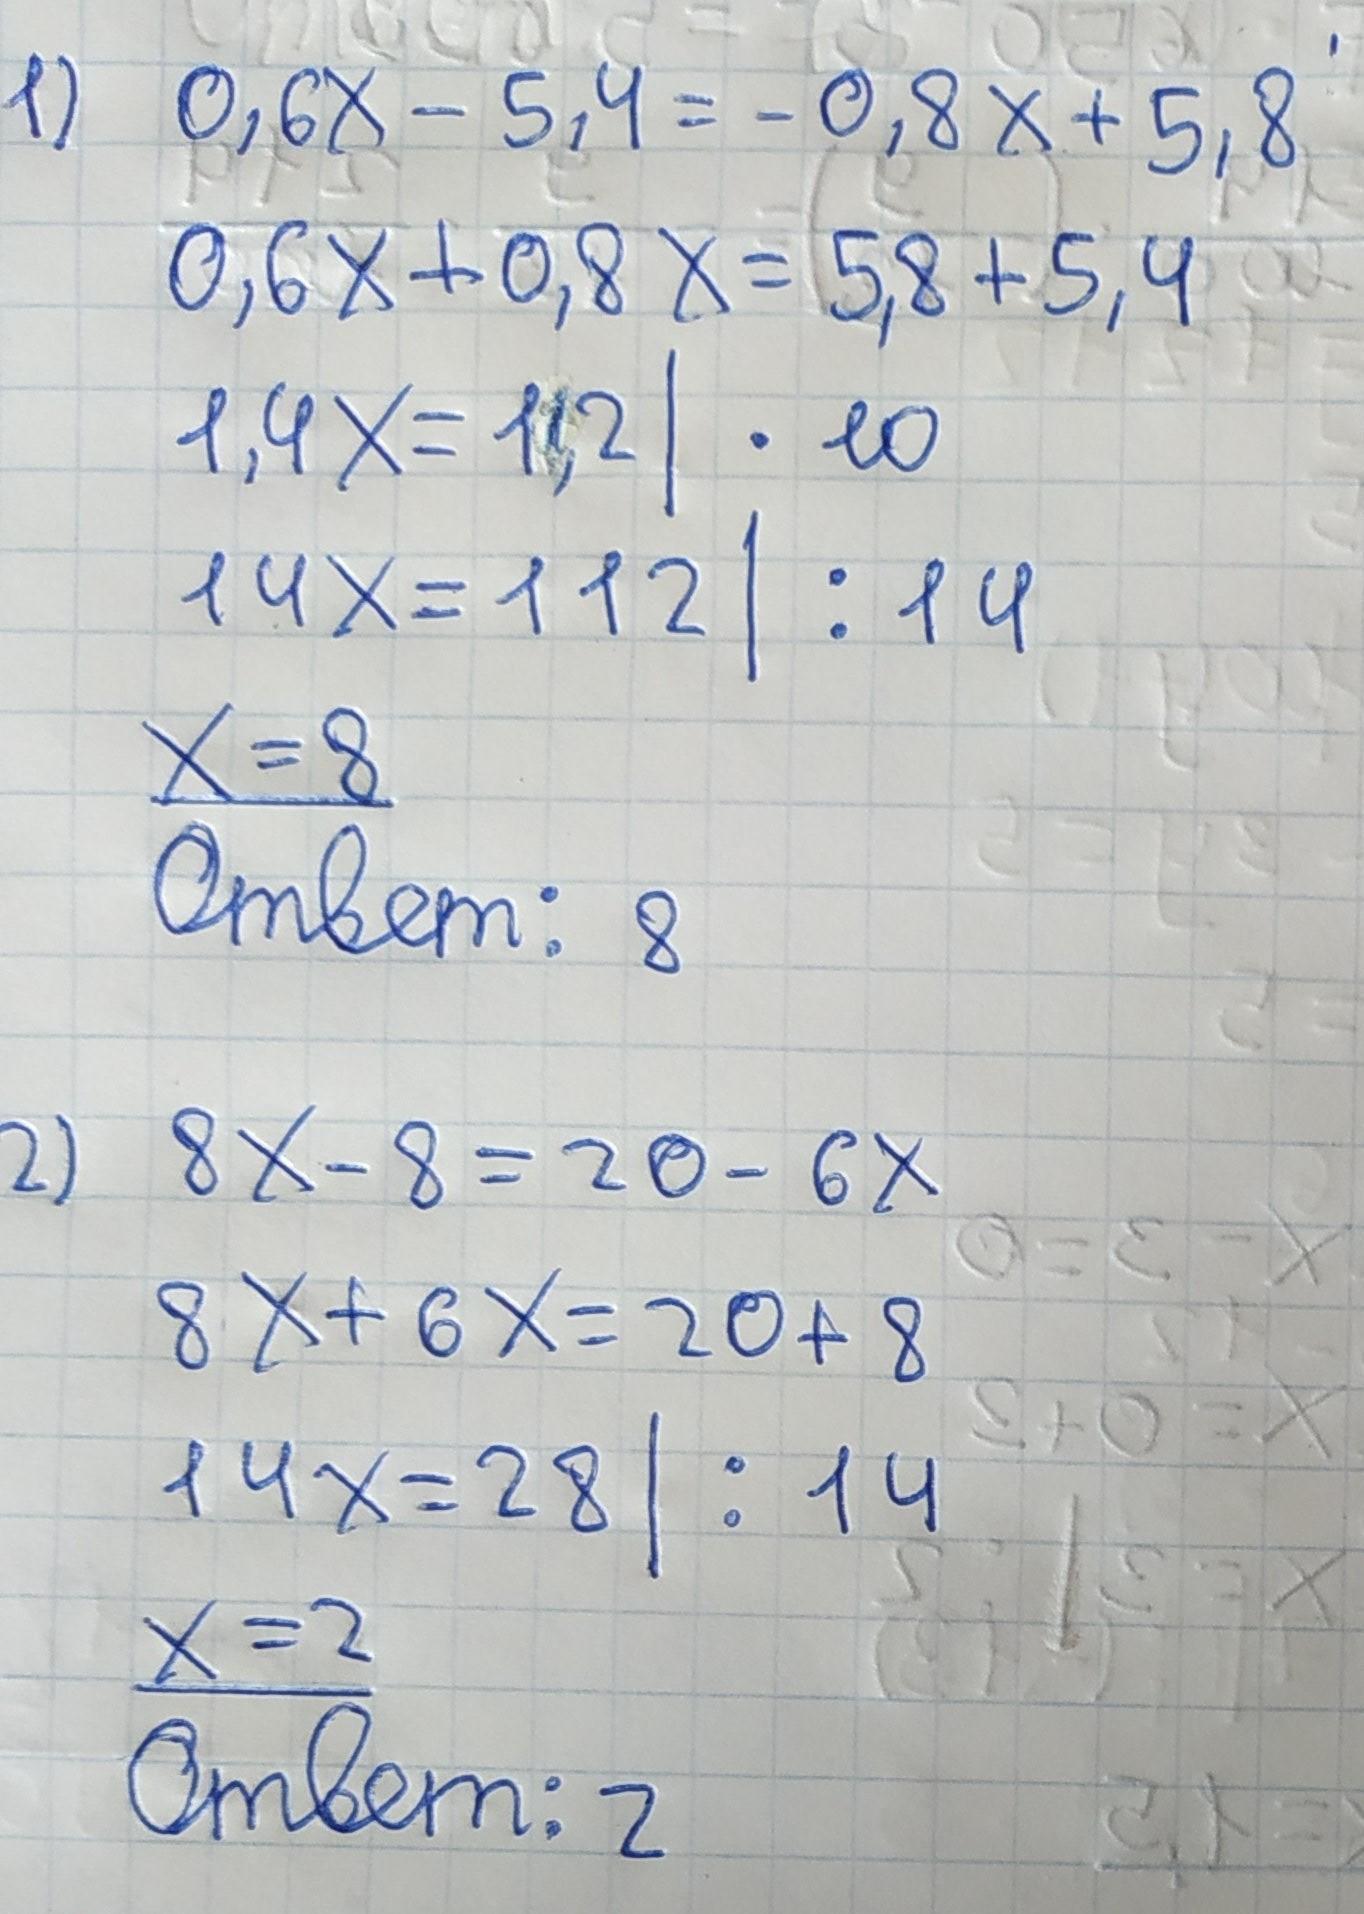 1) 0,6x - 5,4 = - 0,8x + 5,8
0,6x + 0,8x = 5,8 + 5,4
1,4x = 11,2 | · 10
14x = 112 | : 14
x = 8
Ответ: 8
2) 8x - 8 = 20 - 6x
8x + 6x = 20 + 8
14x = 28 | : 14
x = 2
Ответ: 2